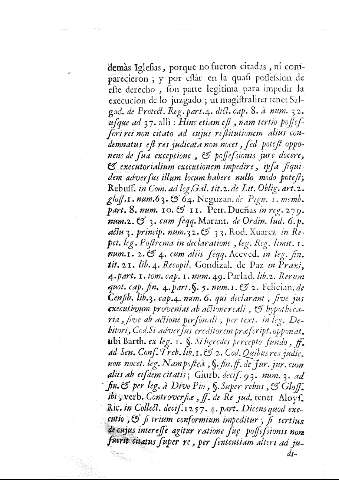 demàs Iglesias, porque no fueron citadas, ni com-
parecieron; y por estàr en la quasi possession de
este derecho, son parte legitima para impedir la
execucion de lo juzgado; ut magistraliter tenet Sal-
gad. de Protect. Reg. part. 4. dict. cap. 8. à num. 32.
usque ad 37. alli: Hinc etiam est, nam tertio posses-
sori rei non citato ad cujus restitutionem alius con-
demnatus est res judicata non nocet, sed potest oppo-
nens de sua exceptione, & possessionis jure docere,
& executorialium executionem impedire, ipsa siqui-
dem adversus illum locum habere nullo modo potest;
Rebuff. in Com. ad leg. Gal. tit. 2. de Lit. Oblig. art. 2.
gloss. 1. num. 63. & 64. Neguzan. de Pign. 1. memb.
part. 8. num. 10. & 11. Pett. Dueñas in reg. 279.
num. 2. & 3. cum seqq. Marant. de Ordin. Jud. 6. p.
actu 3. princip. num. 32. & 33. Rod. Xuarez in Re-
pet. leg. Postrema in declaratione, leg. Reg. limit. 1.
num. 1. 2. & 4. cum aliis seqq. Aceved. in leg. fin.
tit. 21. lib. 4. Recopil. Gondizal. de Paz in Praxi,
4. part. 1. tom. cap. 1. num. 49. Parlad. lib. 2. Rerum
quot. cap. fin. 4. part. §. 5. num. 1. & 2. Felician. de
Censib. lib. 3. cap. 4. num. 6. qui declarant, sive jus
executivum proveniat ab actione reali, & hypotheca-
ria, sive ab actione personali, per text. in leg. De-
bitori, Cod. Si adversus creditorem præscript. opponat,
ubi Barth. ex leg. 1. §. Si heredes percepto fundo, ff.
ad Sen. Cons. Treb. lib. 1. & 2. Cod. Quibus res judic.
non nocet, leg. Nam postea, §. fin. ff. de Jur. jur. cum
aliis ab eisdem citatis; Giurb. decis. 93. num. 3. ad
fin. & per leg. à Divo Pio, §. Super rebus, & Gloss.
ibi, verb. Controversiæ, ff. de Re jud. tenet Aloys.
Ric. in Collect. decis. 1257. 4. part. Dicens quod exe-
cutio, & si trium conformium impeditur; si tertius
de cujus interesse agitur ratione suæ possessionis non
fuerit citatus super re, per sententiam alteri ad ju-
di-